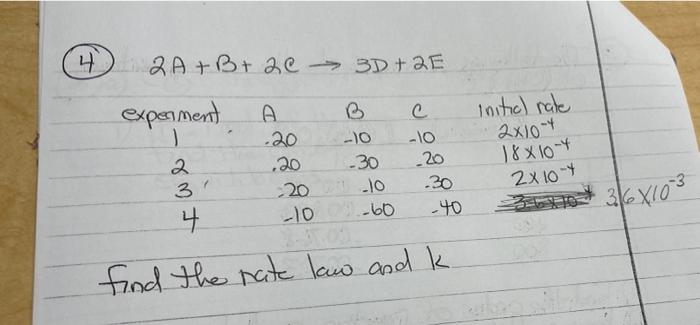 4 2A + B + 2C → 3D + 2E
experiment A B C initial rate
1 .20 .10 .10 2x10-4
2 .20 .30 .20 18x10-4
3 .20 .10 .30 2x10-4
4 .10 .60 .40 3.6x10-3
find the rate law and k